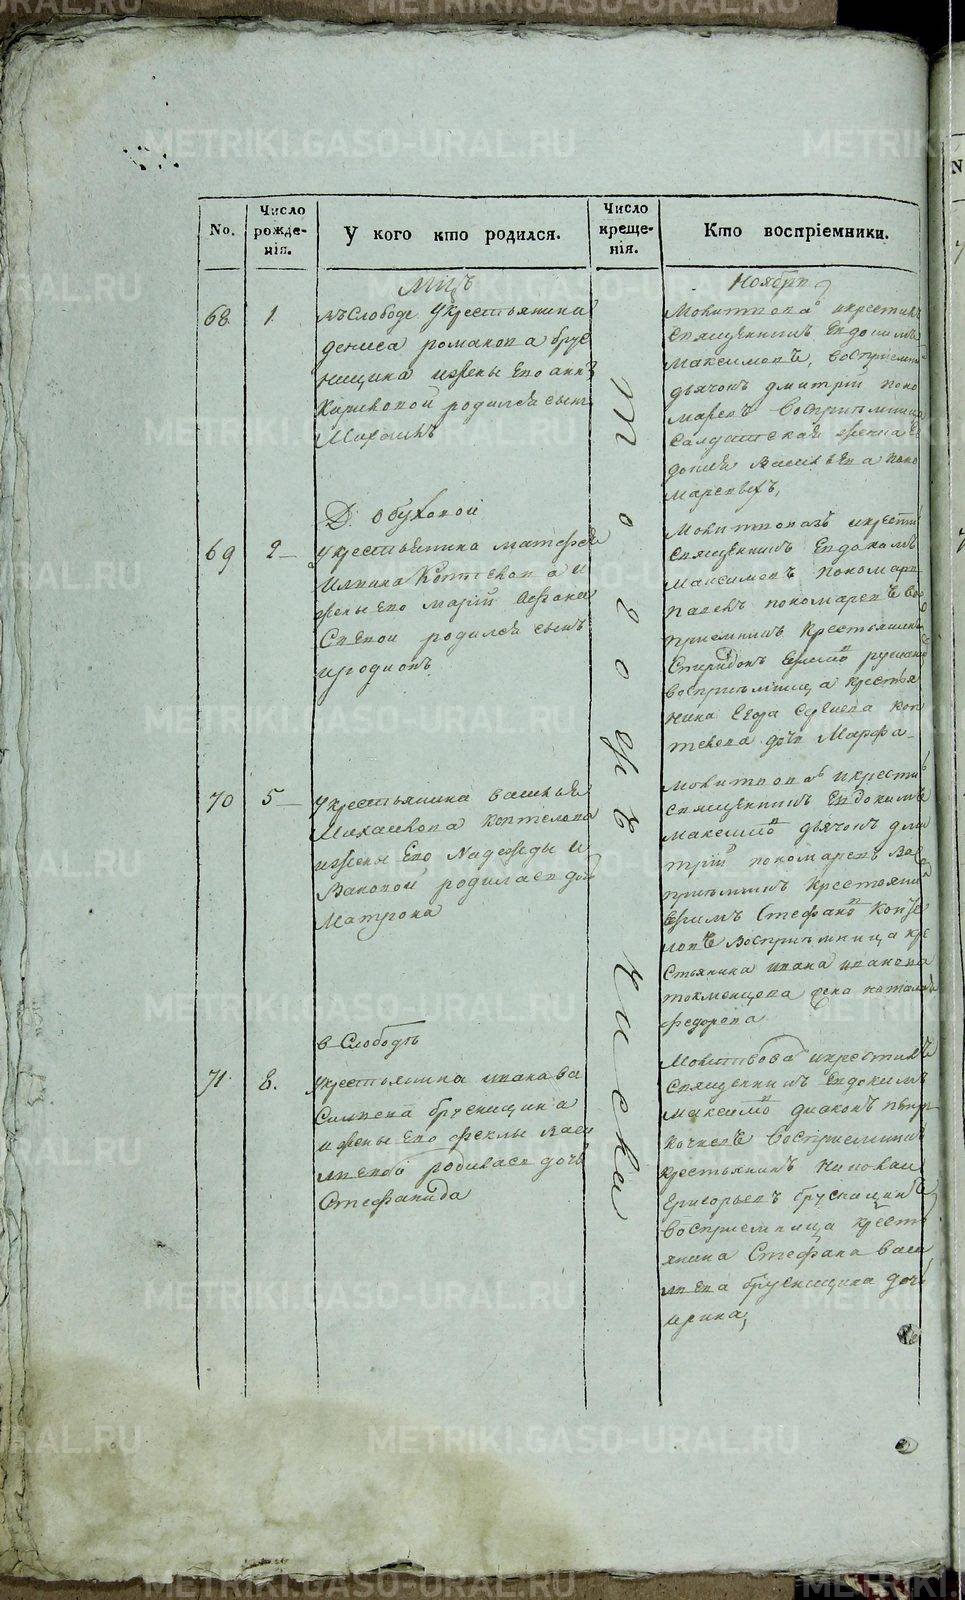 No.
Число рожде-нія.
У кого кто родился.
Число креще-нія.
Кто воспріемники.
Мцъ
Ноябрь
68
1
въ Слободе у крестьянина
дениса романова брус
ницина и жены его анны
Карповой родился сынъ
Михаилъ
Молитвова и крестилъ
Священникъ Евдокимъ
Максимовъ, воспріемни
дьячокъ дмитрій поно
маревъ воспріемница
салдатская жена Ев
докія Васильева поно
маревыхъ,
69
2
Д. обуховой
у крестьянина матфея
Коптелова и
жены его маріи Афана
сьевой родился сынъ
иродионъ
Молитвовалъ и крести
Священникъ Евдокимъ
Максимовъ пономарь
павелъ пономаревъ во
пріемникъ Крестьянинъ
Спиридонъ
воспріемница Крестья
нина Егора Сергиева Коп
телова дочь Марфа
70
5
у крестьянина василья
Михайлова коптелова
и жены его Надежды И
вановой родилась дочь
Матрона
Молитвовалъ и крестилъ
Священникъ Евдокимъ
Максимовъ дьячокъ дми
трій пономаревъ Вос
пріемникъ Крестьянинъ
Ефимъ Стефановъ Копте
ловъ Воспріемница кре
стьянина ивана иванова
токменцева жена наталья
федорова
71
8.
в Слободѣ
у крестьянина ивана ва
сильева брусницина
и жены его феклы Васи
льевой родилась дочь
Стефанида
Молитвова и крестилъ
Священникъ Евдокимъ
Максимовъ диаконъ петръ
воспріемникъ
крестьянинъ николай
григорьевъ брусницинъ
воспріемница кресть
янина Стефана васи
льева брусницина дочь
ирина,
Того же числа
METRIKI.GASO-URAL.RU